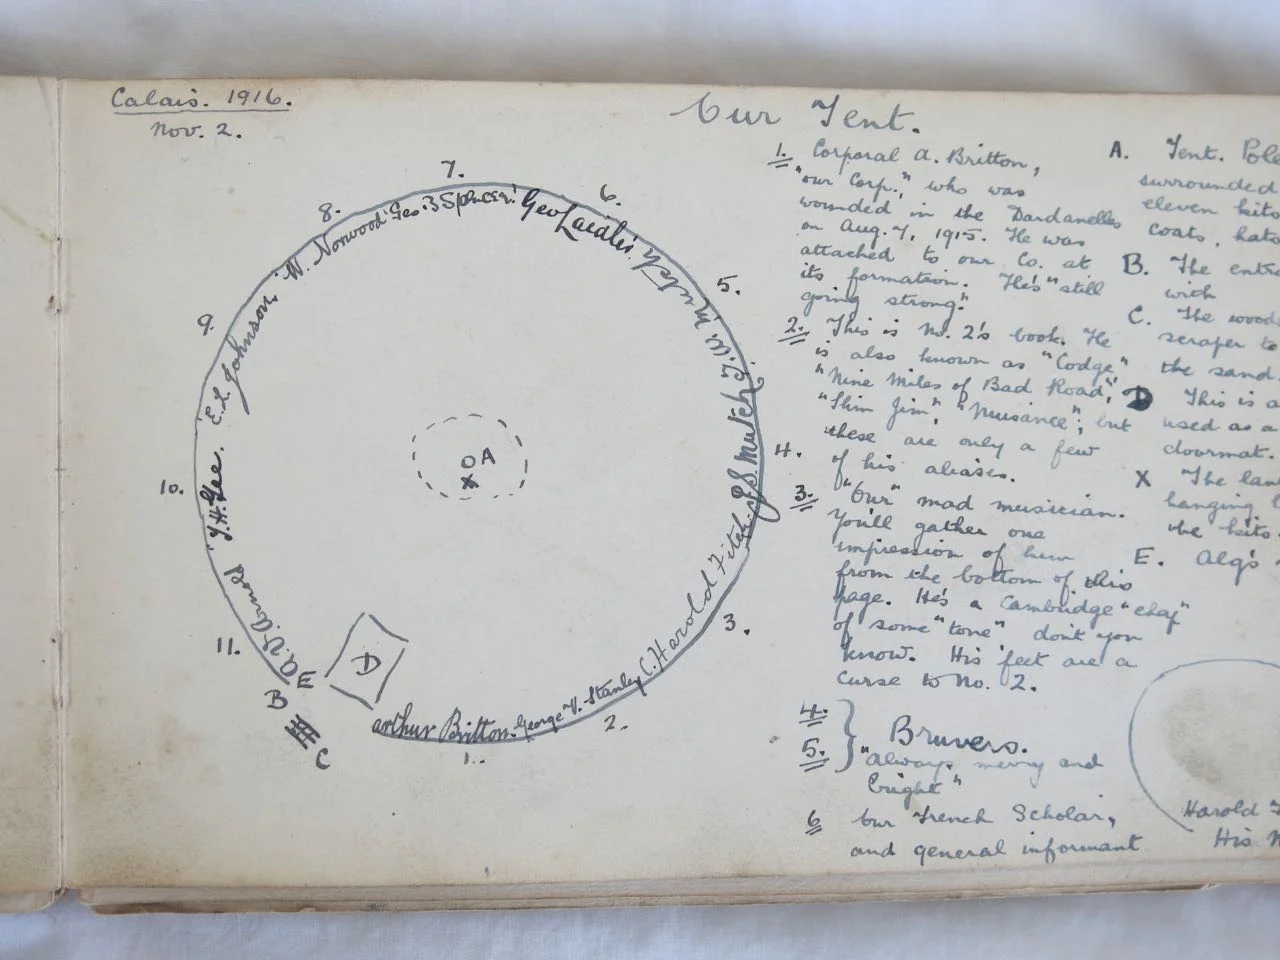 Calais. 1916.
Nov. 2.
Our Tent.
7.
6.
8.
5.
9.
4.
10.
3.
11.
2.
1.
Arthur Britton.
George V. Stanley
C. Harold Fitch.
J.S. Mutch
J.W. Mutch
Geo Laidler
Geo. B Spencer.
W. Norwood
E.L. Johnson.
J.H. Gee.
A.V. Arnold
A
X
D
E
B
C
1. Corporal A. Britton,
"our Corp.", who was
wounded in the Dardanelles
on Aug. 7, 1915. He was
attached to our Co. at
its formation. He's "still
going strong."
2. This is No. 2's book. He
is also known as "Codge"
"Nine Miles of Bad Road",
"Slim Jim", "Nuisance"; but
these are only a few
of his aliases.
3. "Our" mad musician.
You'll gather one
impression of him
from the bottom of this
page. He's a Cambridge "chap"
of some "tone", don't you
know. His feet are a
curse to No. 2.
4.
5. } Bruvers.
"Always merry and
bright"
6 Our French Scholar,
and general informant
A. Tent. Pole
surrounded
eleven kits
coats, hats
B. The
with
C. The
scraper to
the sand.
D This is a
used as a
doormat.
X The
hanging
the kits.
E. Alg's
Harold
His